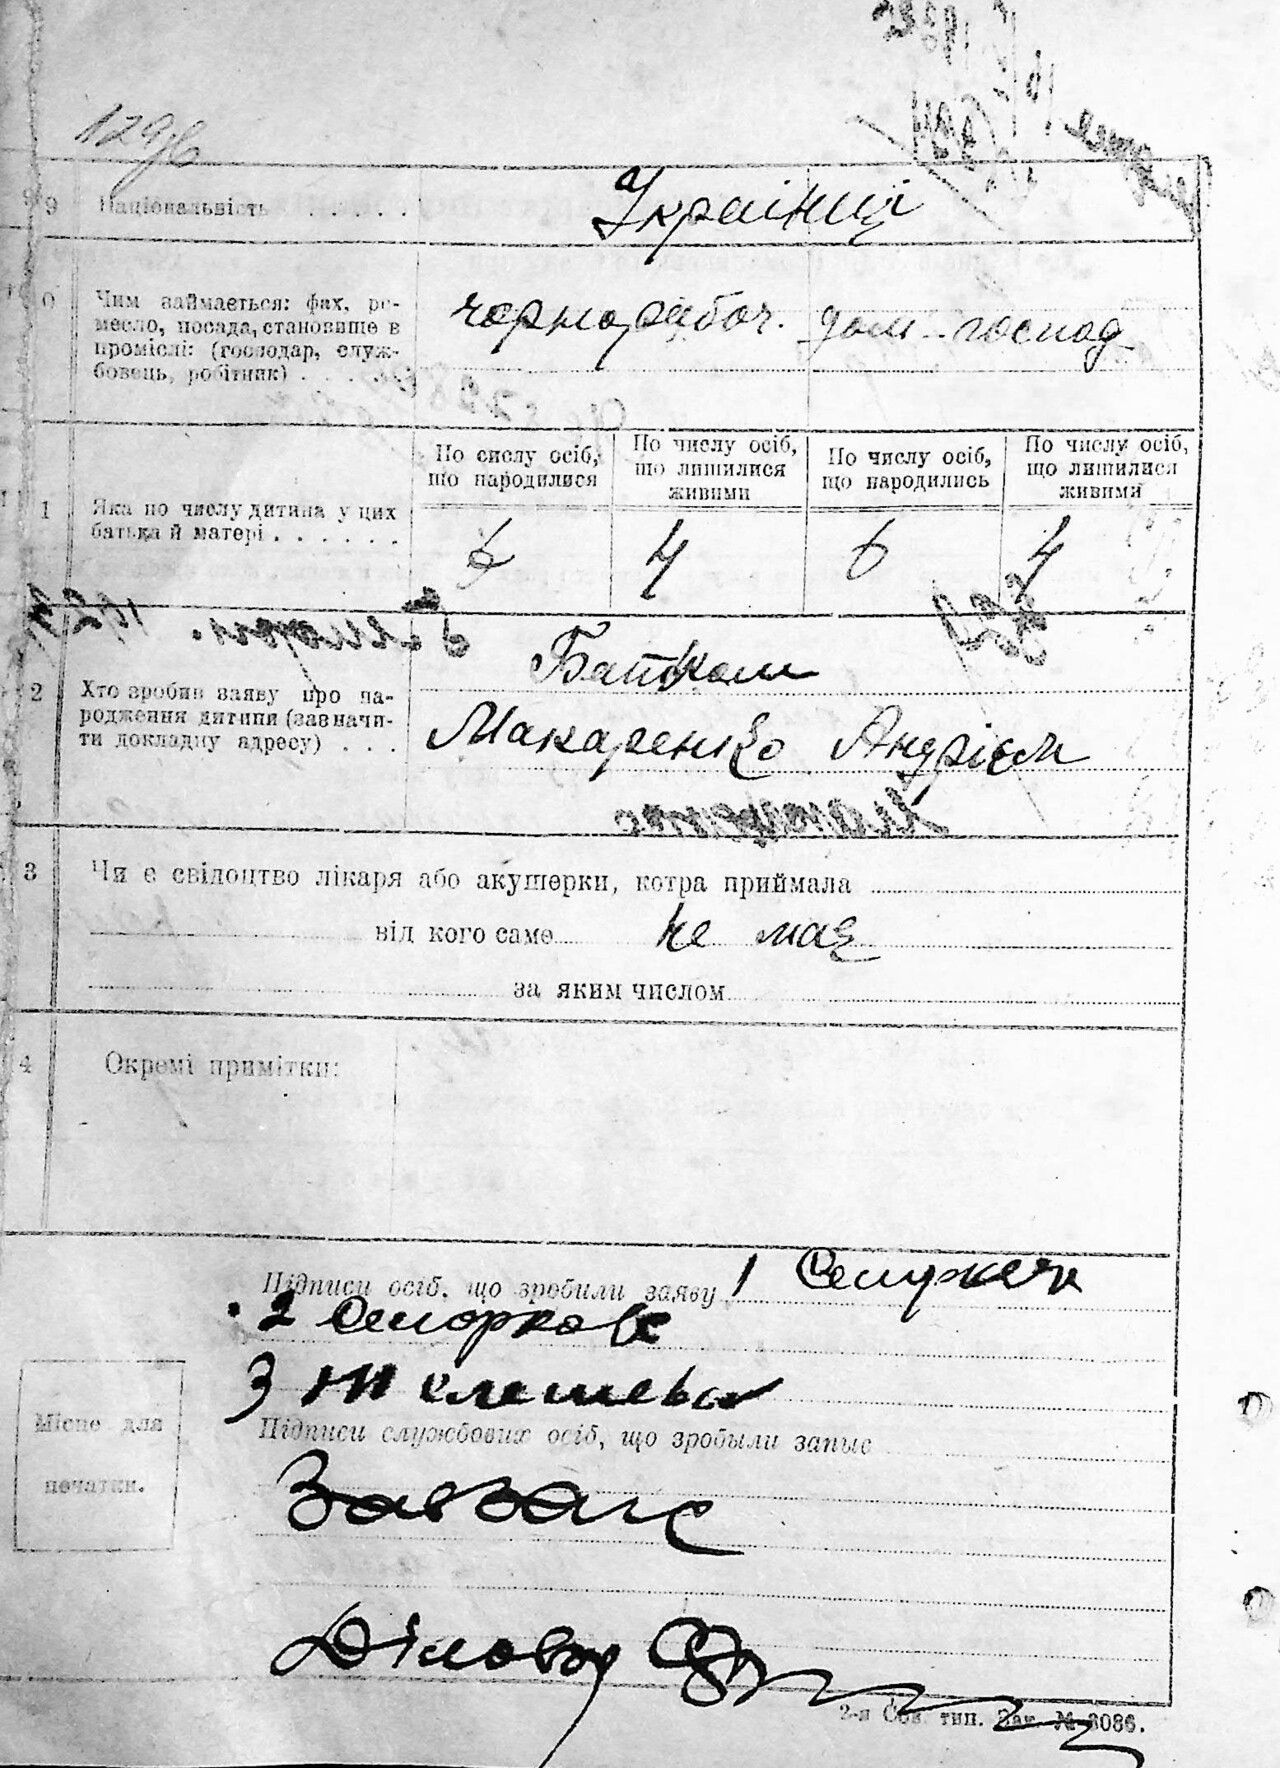 129
9 Національвість
Українці
0 Чим займається: фах, ре-
месло, посада, становище в
проміслі: (господар, служ-
бовець, робітник)
чорнорабоч. дом. господ
По сислу осіб,
що народилися
По числу осіб,
що лишилися
живими
По числу осіб,
що народились
По числу осіб,
що лишилися
живими
1 Яка по числу дитина у цих
батька й матері
6 4 6 4
2 Хто зробив заяву про на-
родження дитини (зазначи-
ти докладну адресу)
Батьком
Макаренко Андрієм
3 Чи є свідоцтво лікаря або акушерки, котра приймала
від кого саме не має
за яким числом
4 Окремі примітки:
Підписи осіб, що зробили заяву 1
2
3
Місце для
печатки.
Підписи службових осіб, що зробыли запис
ЗавЗагс
Діловод
2-я Сов. тип. Зак. № 3086.